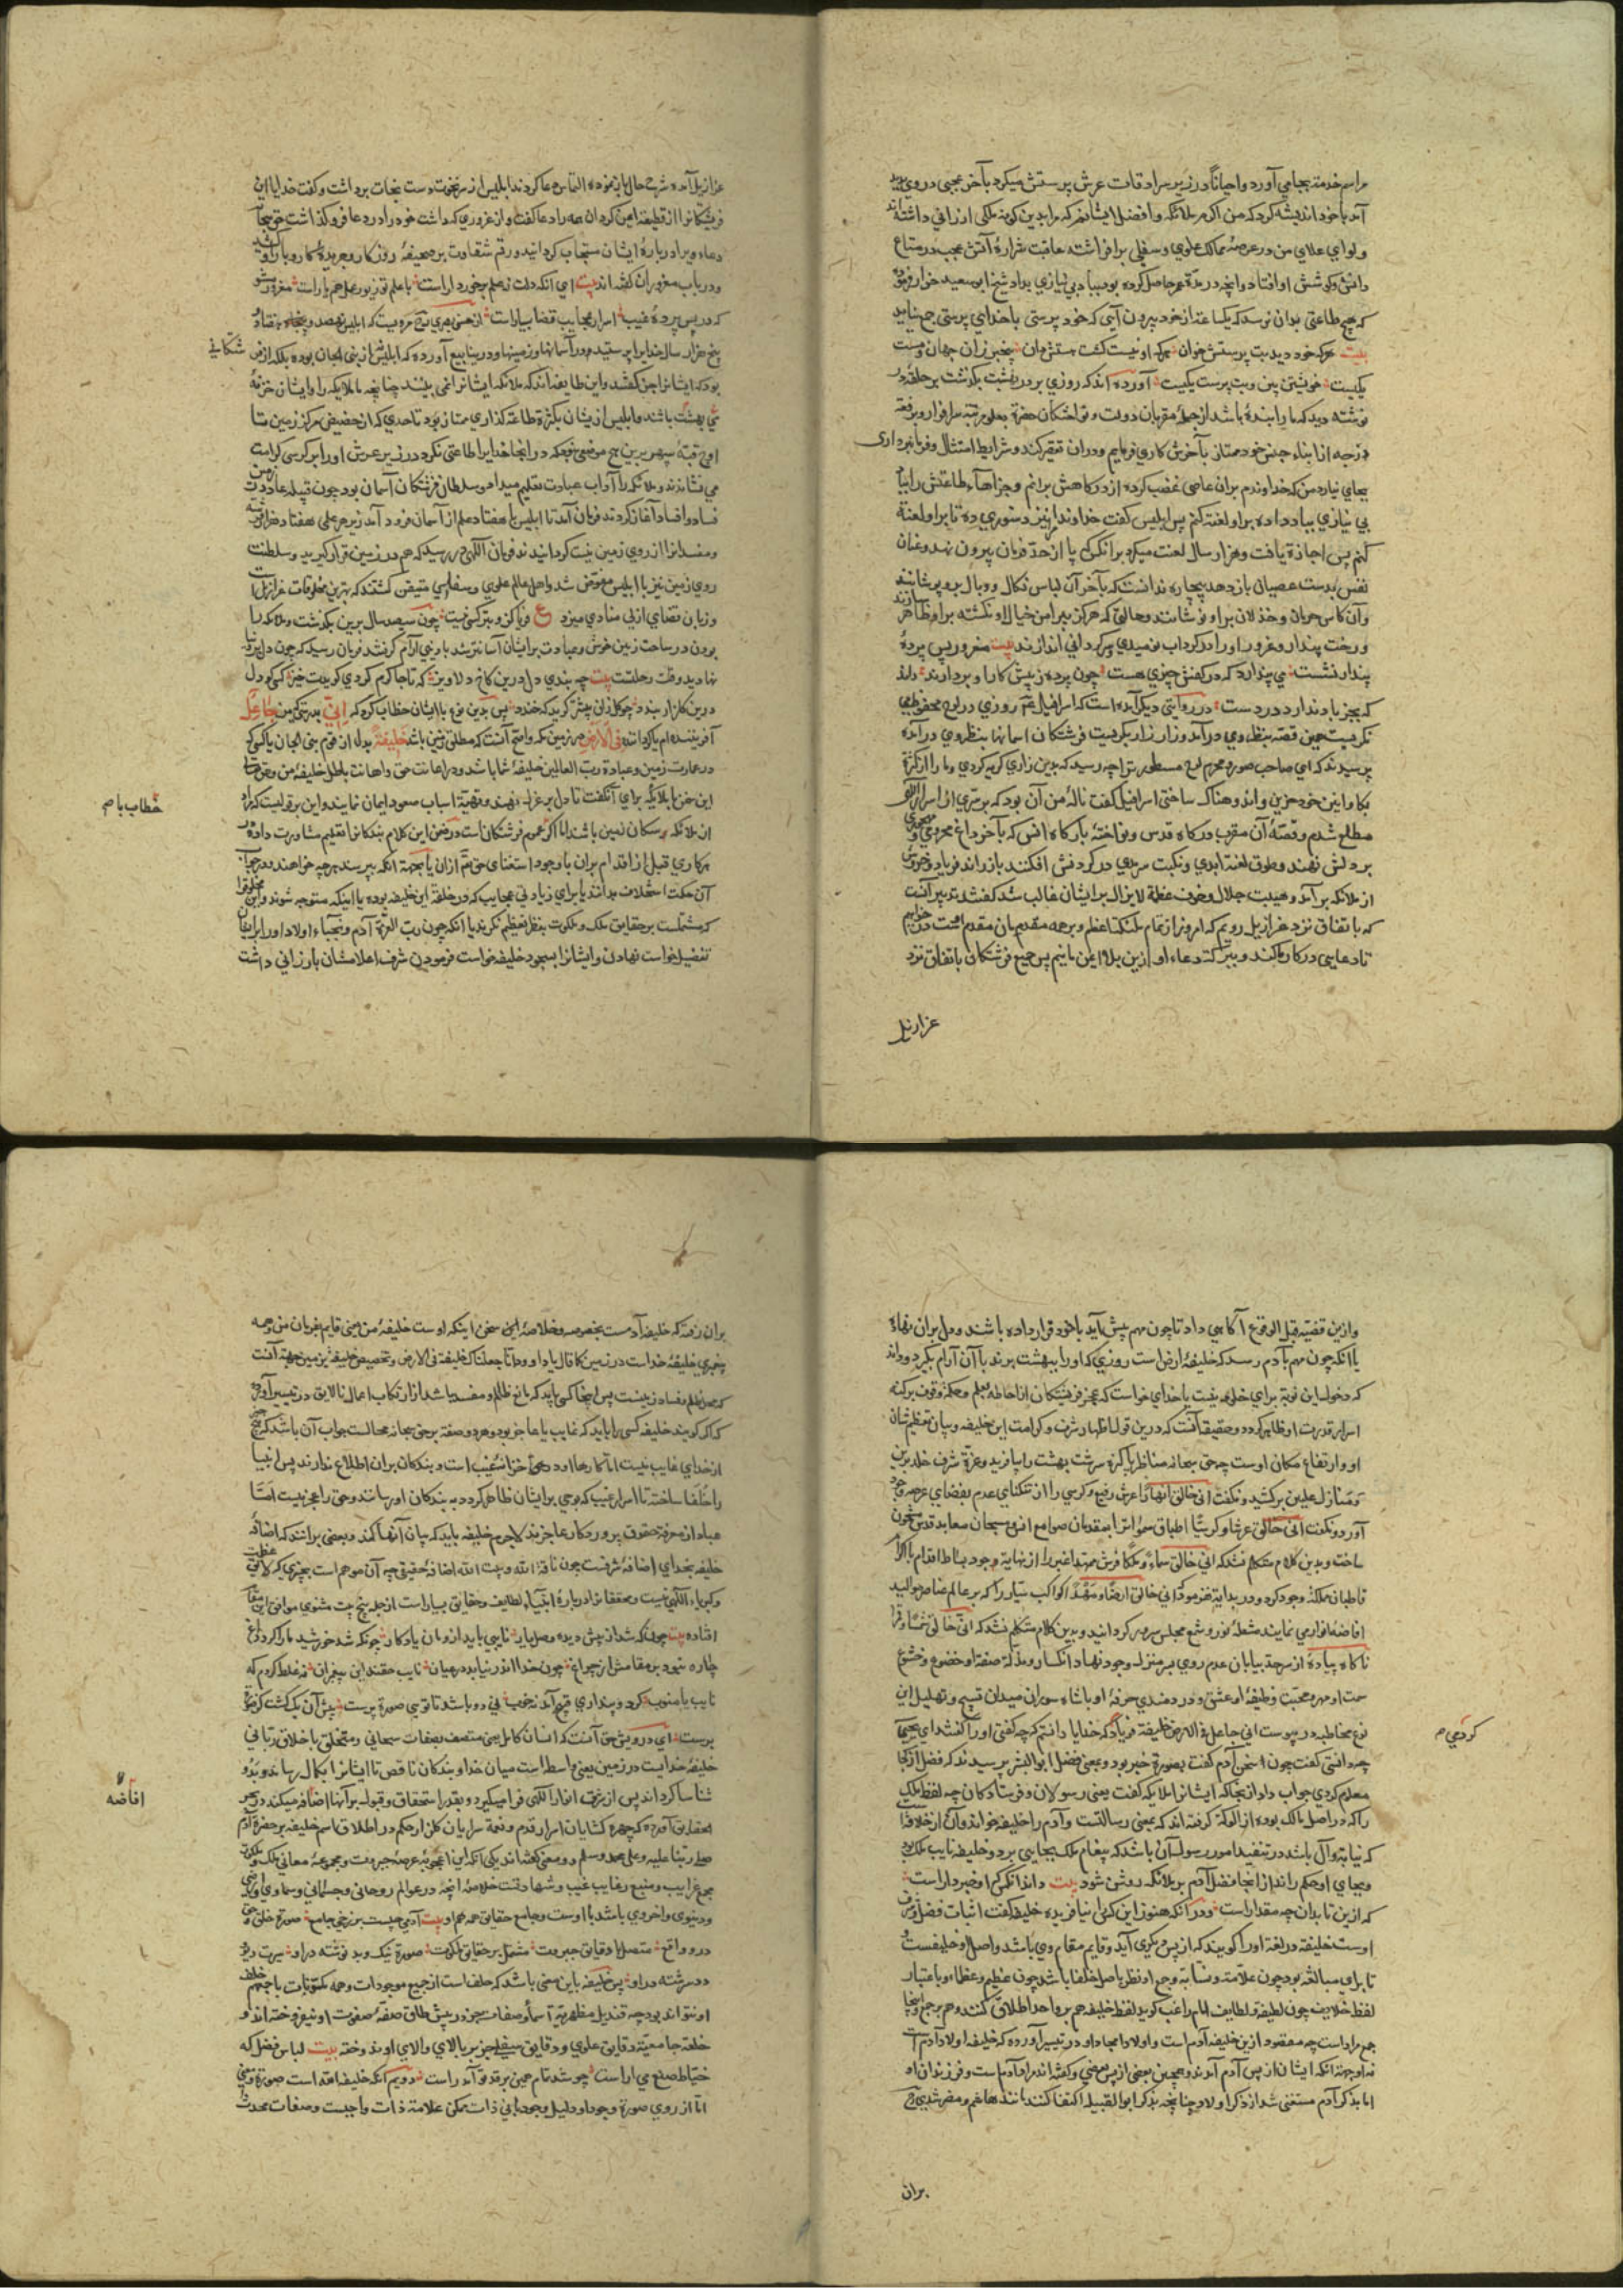 مراسم خدمت بجاي آورد و احياناً در زير سرادقات عرش پرستش ميكرد بآخر عجبي در وي پديد
آمد با خود انديشه كرد كه من اكرم ملائكه و افضل ايشانم كه مرا بدين كونه ملكي ارزاني داشته اند
و لواي علاي من در عرصه ممالك علوي و سفلي برافراشته عاقبت شراره آتش عجب در متاع
دانش و كوشش او افتاد و انچه در مدة عمر حاصل كرده بود بباد بي نيازي بر داد شيخ ابو سعيد خراز فرموده
كه هيچ طاعتي بدان نرسد كه يكساعت از خود بيرون آيي كه خود پرستي با خداي پرستي جمع نيايد
بيت هركه خود ديد بت پرستش خوان
يكيست خويشتن بين و بت پرست يكيست آورده اند كه روزي بر در بهشت بكذشت بر حلقه در
نوشته ديد كه ما را بندۀ باشد از جمله مقربان دولت و نواختكان حضرة بعلو مرتبه سرافراز و برفعة
درجه از ابناء جنس خود ممتاز بآخرش كاري فرماييم و در ان تقصير كند و شرايط امتثال و فرمانبرداري
بجاي نيارد من كه خداوندم بران عاصي غضب كرده از دركاهش برانم و جزاهاء طاعتش را بباد
بي نيازي بباد داده بر او لعنت كنم پس ابليس كفت خداوندا مرا نيز دستوري ده تا بر او لعنة
كنم پس اجازة يافت و هزار سال لعنت ميكرد بر انكس كه پا از حد فرمان بيرون نهد و عنان
نفس بدست عصيان باز دهد بيچاره ندانست كه بآخر آن لباس نكال و وبال برو پوشانند
و آن كاس حرمان و خذلان بر او نوشانند و حالتي كه هركز پيرامن خيال او نكشته بر او ظاهر سازند
و رخت پندار و غرور او را در كرداب نوميدي و سركرداني اندازند بيت مغرور پس پردۀ
پندار نشست مي پندارد كه در كفش چيزي هست چون پرده ز پيش كار او بردارند داند
كه بجز باد ندارد در دست در روايتي ديكر آمده است كه اسرافيل عم روزي در لوح محفوظ مي
نكريست همين قصه بنظر وي در آمد و زار زار بكريست فرشتكان اسمانها بنظر وي در آمده
پرسيدند كه اي صاحب صور و محرم لوح مسطور ترا چه رسيد كه بدين زاري كريه كردي و ما را از كريۀ
بكار اين خود حزين و اندوهناك ساختي اسرافيل كفت نالۀ من آن بود كه بر سري از اسرار الهي
مطلع شدم و قصۀ آن مقرب دركاه قدس و نواختۀ باركاه انس كه بآخر داغ محرومي و مهجوري
بر دلش نهند و طوق لعنة ابدي و نكبت سرمدي در كردنش افكنند باز راند فرياد و خروش
از ملائكه بر آمد و هيبت جلال و خوف عظمة لايزال بر ايشان غالب شد كفتند تدبير آنست
كه باتفاق نزد عزازيل رويم كه امروز از تمام ملائكه اعظم و بر همه مقدم مان مقدم است در خواهيم
تا دعايي در كار ما كند و ببركة دعاء او ازين بلا ايمن مانيم پس جميع فرشتكان باتفاق نزد
عزازيل
عزازيل آمده شرح حال باز نموده التماس دعا كردند ابليس از سر نخوت دست بمناجات برداشت و كفت خدايا اين
فرشتكانرا از قطيعت ايمن كردان همه را دعا كفت و از غروري كه داشت خود را در دعا فرو كذاشت
دعاء ويرا در بارۀ ايشان مستجاب كردانيد و رقم شقاوت بر صحيفۀ روزكار و جريدۀ كار و بار او كشيد
و در باب مغروران كفته اند بيت اي آنكه دلت ز علم برخوردارست با علم تو زيور عمل هم يارست مغرور مشو
كه در پس پردۀ غيب اسرار عجايب قضا بسيارست از حسن بصري مرويست كه ابليس نهصد و پنجاه و هفتاد
پنج هزار سال خدايرا پرستيد در آسمانها و زمينها و در ينابيع آورده كه ابليس از بني الجان بوده بلكه از
بود كه ايشانرا جن كفتند و اين طايفه اند كه ملائكه ايشانرا نمي بينند چنانچه ما ملائكه را و ايشان خزنۀ
بهشت باشند و ابليس از يشان بكثرة طاعت كذاري ممتاز بود تا حدي كه از حضيض مركز زمين تا
اوج قبۀ سپهر برين هيچ موضعي نبود كه در انجا خدايرا طاعتي نكرد در زير عرش او را بر كرسي كرامت
مي نشاندند و ملائكه را آداب عبادت تعليم ميداد و سلطان فرشتكان آسمان بود چون قبيلۀ عاد در زمين
فساد و افساد آغاز كردند فرمان آمد تا ابليس با هفتاد علم از آسمان فرود آمد زير هر علمي هفتاد هزار فرشته
و مفسدانرا از روي زمين نيست كردانيدند فرمان الهي در رسيد كه هم در زمين قرار كيريد و سلطنت
روي زمين نيز با ابليس مفوض شد و اهل عالم علوي و سفلي متيقن كشتند كه بهترين مخلوقات عزازيل است
و زبان قضاي ازلي منادي ميزد ع فرياد كزو بتر كسي نيست چون سيصد سال برين بكذشت و ملائكه را
بودن در ساحت زمين خوش و عبادت بر ايشان آسانتر شد با زمين آرام كرفتند فرمان رسيد كه چون دل برقرار
نهاديد وقت رحلتست بيت چه بندي دل درين كاخ دلاويز كه تا جا كرم كردي كويدت خيز كسي كو دل
درين كلزار بندد چو كل زان بيشتر كريد كه خندد پس بدين نوع با ايشان خطاب كرد كه إِنِّي بدرستي من جَاعِلٌ
آفريننده ام يا كرداننده فِي الْأَرْضِ در زمين مكه و اصح آنست كه مطلق زمين باشد خَلِيفَةً بدل از قوم بني الجان يا كسي كه
در عمارت زمين و عبادة رب العالمين خليفۀ شما باشد و در اعانت حق و اهانت باطل خليفۀ من
اين سخن با ملائكه براي آن كفت تا دل بر عزل نهند و تهيۀ اسباب صعود ايمان نمايند و اين بر قوليست كه مراد
از ملائكه سكان زمين باشند اما اكر عموم فرشتكانست در ضمن اين كلام بندكانرا تعليم مشاورت داده در
هر كاري قبل از اقدام بران با وجود استغناي حق تع ازان يا بجهة انكه بپرسند هرچه خواهند و در جواب
آن حكمت استخلاف بدانند يا براي زيادتي عجايب كه در خلقة اين خليفه بوده يا اينكه متوجه شوند و اين مخلوق را
كه مشتملست بر حقايق ملك و ملكوت بنظر تعظيم نكرند يا انكه چون رب العزة آدم و نجباء اولاد او را بر ايشان
تفضيل خواست نهادن و ايشانرا بسجود خليفه خواست فرمودن شرف اعلامشان بارزاني داشت
شكاني
خطاب با م
و ازين قضيه قبل الوقوع آكاهي داد تا چون مهم پيش آيد با خود قرار داده باشند و دل بران نهاده
يا آنكه چون مهم بآدم رسد كه خليفۀ ارض است روزي كه او را ببهشت برند با آن آرام نكيرد و داند
كه دخول اين نوبة براي خلود نيست يا خداي خواست كه عجز فرشتكان از احاطه بعلم و حكمة و وقوف بر كنه
اسرار قدرت او ظاهر كردد و حقيقة آنست كه درين قول اظهار شرف و كرامت اين خليفه و بيان تعظيم شان
او و ارتفاع مكان اوست چه حق سبحانه مناظر پاكيزه سرشت بهشت را بيافريد و غرفۀ شرف خلد برين
و منازل عليين بركشيد و نكفت اني خالق انهاراً عرش رفيع و كرسي را از تنكناي عدم بفضاي عرصۀ وجود
آورد و نكفت اني خالق عرشا و كرسيا اطباق سموات را بمقدسان صوامع انس و مسبحان معابد قدس مشحون
ساخت و بدين كلام متكلم نشد كه اني خالق سماءً و ملكا فرش ممهد اغبر را از نهايت وجود بساط اقدام
قاطبان مملكة وجود كرد و در بدايت نفرمود كه اني خالق ارضا و مهدا كواكب سيار را كه بر عالم عناصر و مواليد
افاضۀ انوار مي نمايند مشعلۀ نور و شمع مجلس سرور كردانيد و بدين كلام متكلم نشد كه اني خالق شمسا و قمرا
ناكاه پيادۀ از سرحد بيابان عدم روي بر منزل وجود نهاد انكسار و مذلة صفة او خضوع و خشوع
سمت او مهر و محبت وظيفه او عشق و دردمندي حرفۀ او باشاء سواران ميدان تسبيح و تهليل اين
نوع مخاطبه در پيوست اني جاعل في الارض خليفة فرياد كه خدايا دانستم كه چه كفتي او را كفتند اي يحيي
چه دانستي كفت چون اسخن آدم كفت بصورة خبر بود و بمعني فضل ابو البشر پرسيدند كه فضل از كجا
معلوم كردي جواب داد از انجا كه ايشانرا ملائكه كفت يعني رسولان و فرستادكان چه لفظ ملك
را كه در اصل مالك بوده از الوكة كرفته اند كه بمعني رسالتست و آدم را خليفه خواند و آن از خلافتست
كه نيابة و آل باشد در تنفيذ امور رسول آن باشد كه پيغام ملك بجايي برد و خليفه نايب ملك بود
و بجاي او حكم راند از انجا فضل آدم بر ملائكه روشن شود بيت داند انكس كه او خبردارست
كه ازين تا بدان چه مقدارست و در آنكه هنوز اين كس را نيافريده خليفه كفت اثبات فضل و شرف
اوست خليفه در لغة او را كويند كه از پس ديكري آيد و قايم مقام وي باشد و اصل او خليفست
تا براي مبالغه بود چون علامة و نسابة و جمع او نظر باصل خلفا باشد چون عظيم و عظماء و باعتبار
لفظ خلايف چون لطيفه و لطايف امام راغب كويد لفظ خليفه هم بر واحد اطلاق كنند و هم بر جمع و اينجا
جمع مراد است چه مقصود ازين خليفه آدم است و اولاد امجاد او در تيسير آورده كه خليفه اولاد آدم است
نه او بجهة انكه ايشان از پس آدم آمدند و همچنين بعضي از پس بعضي و كفته اند مراد آدمست و فرزندان او
اما بذكر آدم مستغني شد از ذكر اولاد چنانچه بذكر ابو القبيله اكتفا كنند مانند هاشم و مضر
كردمي م
بران
بران رفته كه خليفه آدمست بخصوصه و خلاصۀ اين سخن اينكه اوست خليفۀ من يعني قايم بفرمان من و همه
پيغمبري خليفۀ خداست در زمين كما قال يا داود انا جعلناك خليفة في الارض و تخصيص خليفه بزمين جهة آنست
كه محل ظلم و فساد زمينست پس اينجا كسي بايد كه مانع ظالم و مفسد باشد از ارتكاب اعمال نالايق در تيسير آورده
كه اكر كويند خليفه كسي را بايد كه غايب يا عاجز بود و هر دو صفة بر حق سبحانه محالست جواب آن باشد كه هيچ چيز
از خداي غايب نيست اما كارها او در حجاب خزانۀ غيب است و بندكان بران اطلاع ندارند پس انبيا
را خلفا ساخته تا اسرار غيب كه بوحي بر ايشان ظاهر كردد به بندكان او رسانند و حق را عجز نيست امّا
عباد از معرفة حقوق پروردكار عاجزند لاجرم خليفه بايد كه بيان آنها كند و بعضي برانند كه اضافۀ
خليفه بخداي اضافۀ شرفست چون ناقة الله و بيت الله اضافۀ حقيقي چه آن موهم است بچيزي كه لايق عظمت
و كبرياء الهي نيست و محققانرا در بارۀ انبياء لطايف و حقايق بسيار است از جمله پنج بيت مثنوي موافق اين مقام
افتاده بيت چونكه شد از پيش ديده وصل يار نايبي بايد از و مان يادكار چونكه شد خورشيد و ما را كرد داغ
چاره نبود بر مقامش از چراغ چون خدا اندر نيايد در عيان نايب حقند اين پيغمبران نه غلط كردم كه
نايب با منوب كر دو پنداري قبيح آيد نه خوب ني دو باشد تا تويي صورة پرست پيش آن يك كشت كز صورة
برست اي درويش حق آنست كه انسان كامل يعني متصف بصفات سبحاني و متخلق باخلاق رباني
خليفۀ خدايست در زمين يعني واسطه است ميان خدا و بندكان ناقص تا ايشانرا بكمال رساند و بدو
شناسا كرداند پس از يك طرف انوار الهي فرا ميكيرد و بقدر استحقاق و قبول بر آنها اضافه ميكند در بحر
الحقايق آورده كه چهره كشايان اسرار قدم و نغمة سرايان كلزار حكم در اطلاق اسم خليفه بر حضرة آدم
صلي ربنا عليه و علي محمد و سلم دو معني كفته اند يكي آنكه اين اعجوبۀ عرصۀ جبروت و مجموعۀ معاني ملك و ملكوت
مجمع غرايب و منبع رغايب غيب و شهادتست خلاصۀ انچه در عوالم روحاني و جسماني و سماوي و ارضي
و دنيوي و اخروي باشد با اوست و جامع حقايق همه هم او بيت آدمي چيست برزخي جامع صورة خلق و حق
درو واقع متصل با دقايق جبروت مشتمل بر حقايق ملكوت صورة نيك و بد نوشته درو سيرت ديو و
دد سرشته درو پس خليفه باين معني باشد كه خلف است از جميع موجودات و همه مكونات با جمعهم خلف
او نتوانند بود چه قنديل مظهريت اسماء و صفات جز در پيش طاق صفۀ صفوت او نيفروخته اند و
خلعة جامعية و دقايق علوي و دقايق سفلي جز بر بالاي والاي او ندوخته بيت لباس فضل كه
خياط صنع مي اراست چو شد تمام همين بر قد تو آمد راست دويم آنكه خليفۀ الله است صورة و معني
اما از روي صورة وجود او دليل وجود الهي ذات ممكن علامة ذات واجبست و صفات محدث
افاضه